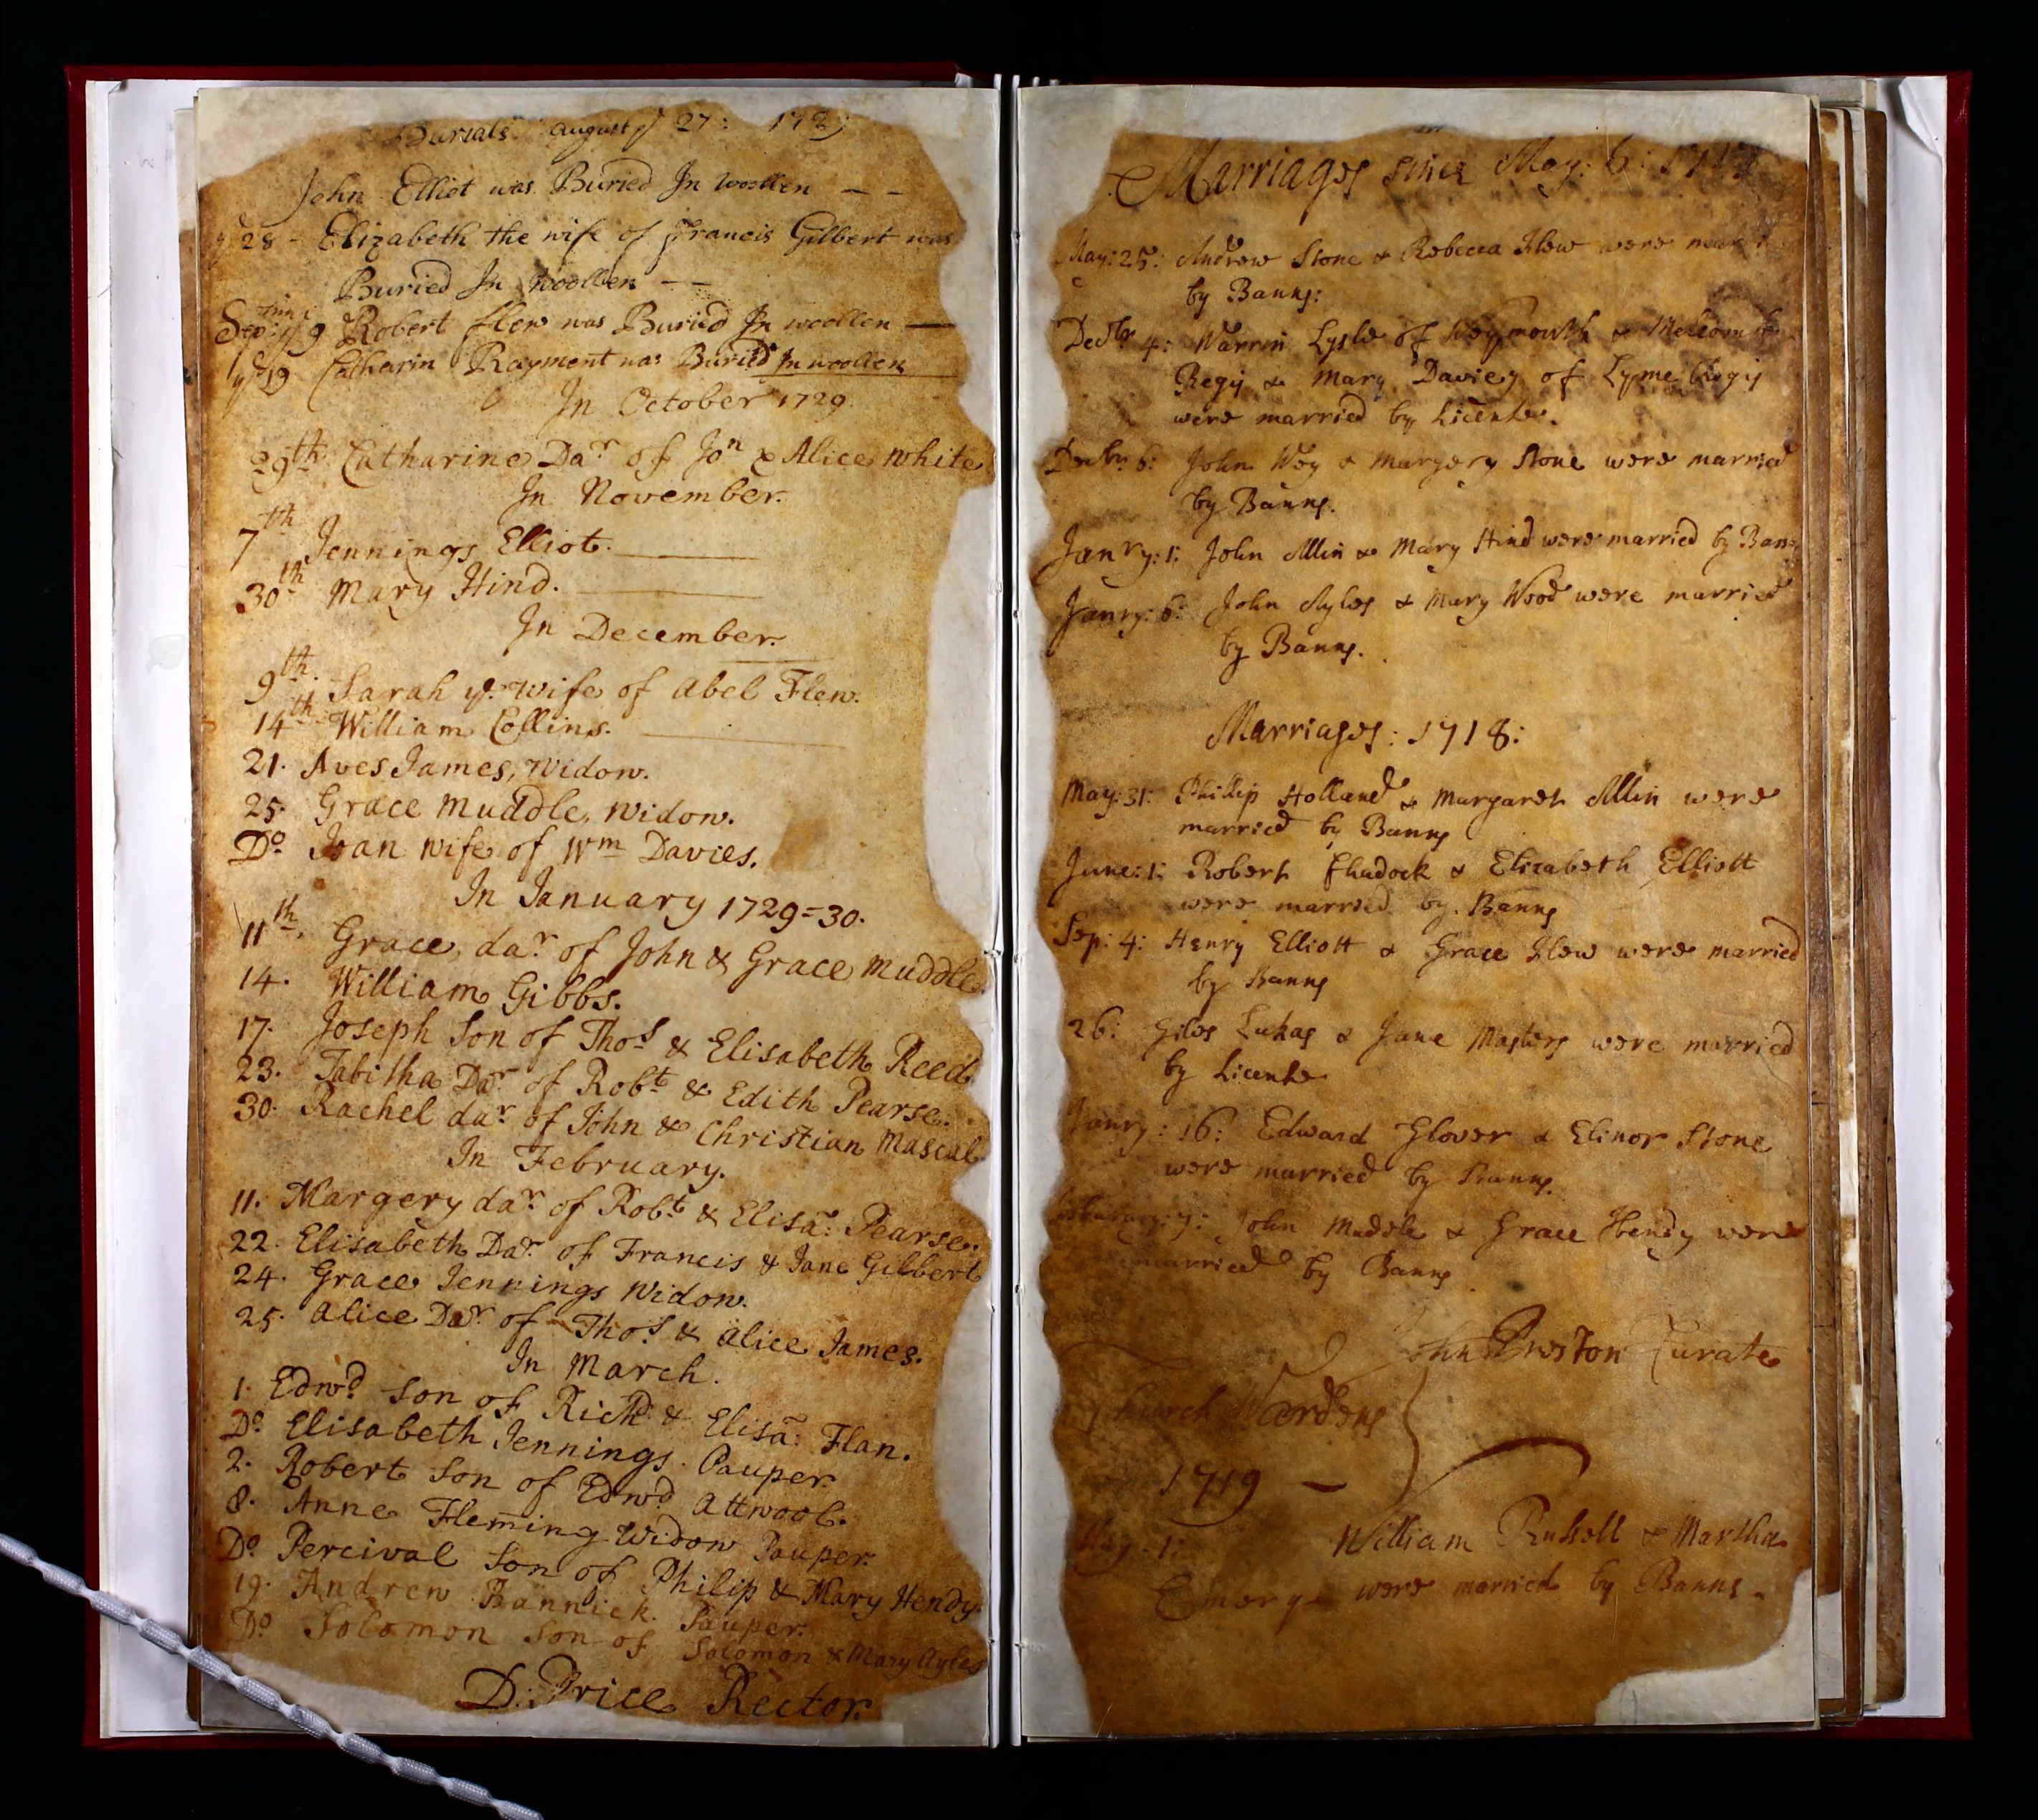 Burials August ye 27: 172
John Elliot was Buried In woollen — —
ye 28 - Elizabeth the wife of Francis Gilbert was
Buried In woollen — —
Sep: ye 9 Robert flew was Buried In woollen —
ye 19 Catharin Rayment was Buried In woollen
In October 1729
29th Catharine Dar of Jon & Alice White
In November.
7th Jennings Elliot.
30th Mary Hind.
In December.
9th. Sarah ye wife of Abel Flew.
14th William Collins.
21. Aves James, Widow.
25. Grace Muddle, Widow.
Do. Joan wife of Wm Davies.
In January 1729=30.
11th. Grace, dar of John & Grace Muddle.
14. William Gibbs.
17. Joseph Son of Thos & Elisabeth Reed
23. Tabitha Dar of Robt & Edith Pearse.
30. Rachel dar of John & Christian Mascal
In February.
11. Margery dar of Robt & Elisa: Pearse.
22. Elisabeth Dar of Francis & Jane Gilbert
24. Grace Jennings Widow.
25. Alice Dar of Thos & Alice James.
In March.
1. Edwd Son of Richd & Elisa: Flan.
Do. Elisabeth Jennings. Pauper.
2. Robert Son of Edwd Attwool.
8. Anne Fleming Widow Pauper.
Do Percival Son of Philip & Mary Hendy.
19. Andrew Bannick. Pauper.
Do Solomon Son of Solomon & Mary Ayles
D: Price Rector.
Marriages since May: 6: 171
May: 25: Andrew Stone & Rebecca Flew were
by Banns:
Decbr 4: Warrin Lysle of Weymouth & Melcomb
Regis & Mary Davies of Lyme Regis
were married by Licente.
Decbr: 6: John Wey & Margery Stone were married
by Banns.
Janry: 1: John Allin & Mary Hind were married by Banns
Janry: 6: John Ayles & Mary Wood were married
by Banns.
Marriages: 1718:
May: 31: Phillip Holland & Margaret Allin were
married by Banns
June: 1: Robert & Elizabeth Elliott
were married by Banns
Sep: 4: Henry Elliott & Grace Flew were married
by Banns
26: Giles Lukas & Jane Masters were married
by Licente
Janry: 16: Edward Glover & Elinor Stone
were married by Banns.
John Muddle & Grace Hendy were
married by Banns
John Curate
Church Wardens
1719 —
May: 1: William Russell & Martha
Emery were married by Banns -